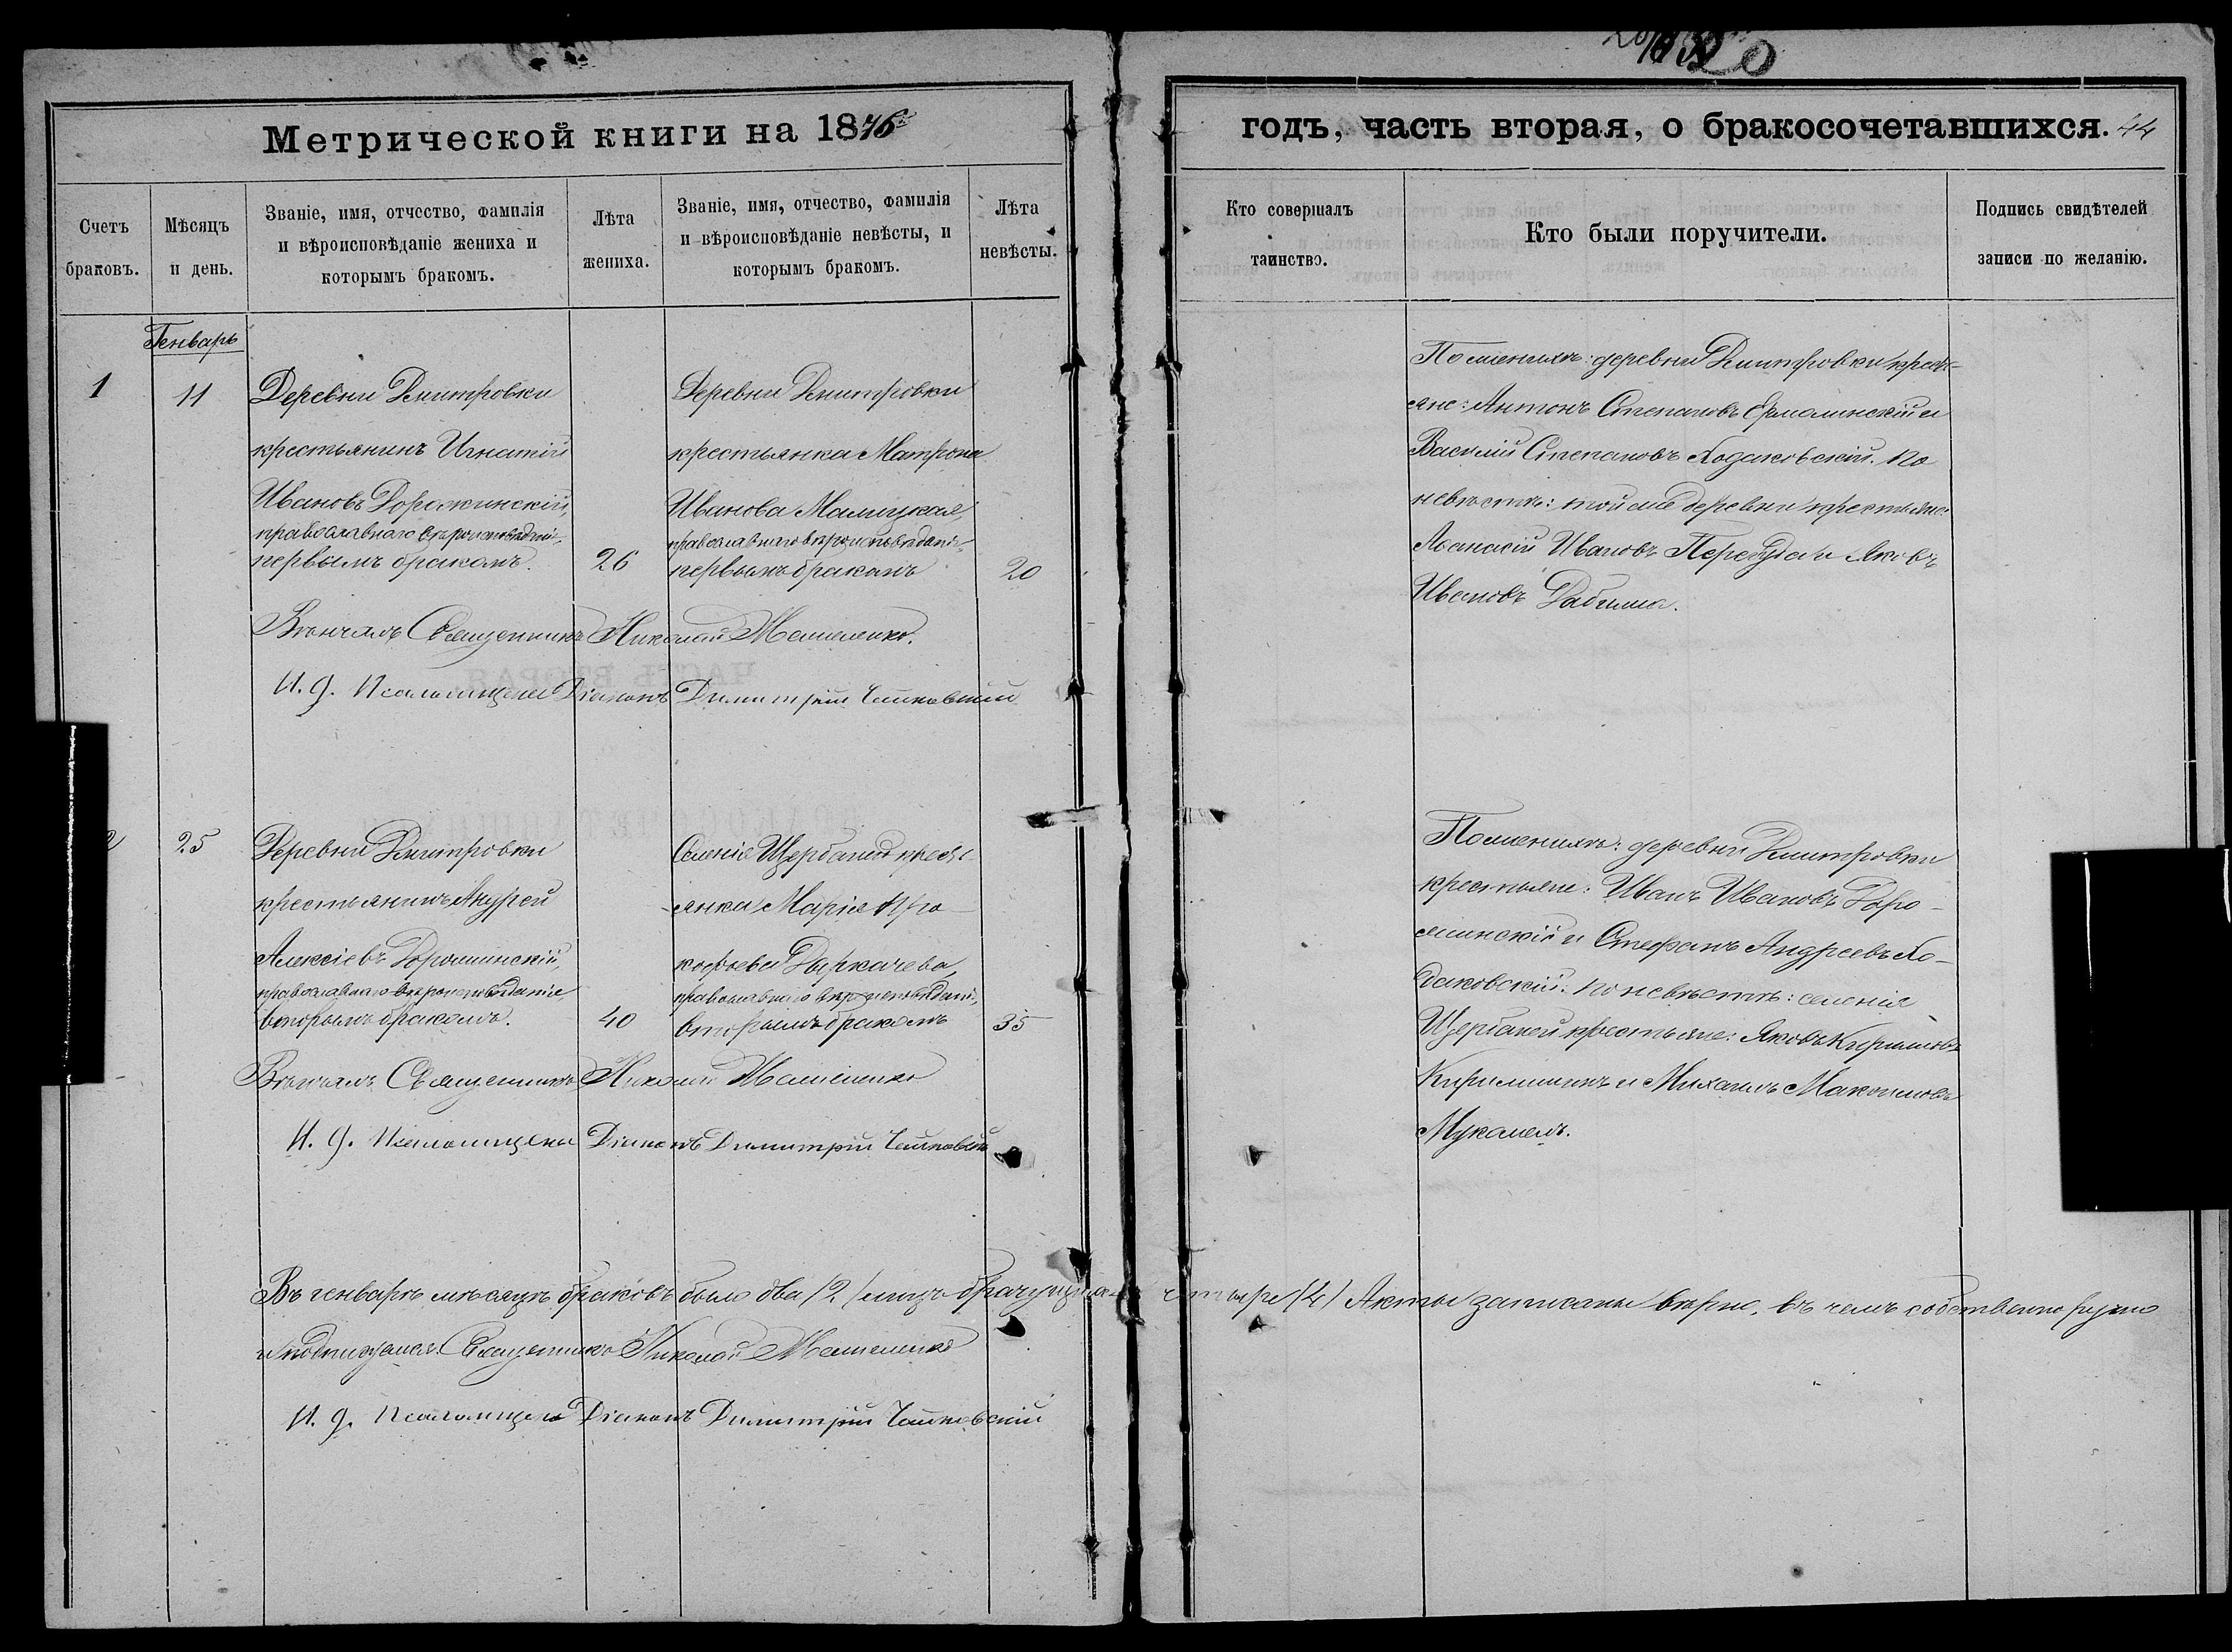 Метрической книги на 1876
годъ, часть вторая, о бракосочетавшихся. 44
Счетъ браковъ.
Мѣсяцъ и день.
Званіе, имя, отчество, фамилія и вѣроисповѣданіе жениха и которымъ бракомъ.
Лѣта жениха.
Званіе, имя, отчество, фамилія и вѣроисповѣданіе невѣсты, и которымъ бракомъ.
Лѣта невѣсты.
Кто совершалъ таинство.
Кто были поручители.
Подпись свидѣтелей записи по желанію.
Генварь
1
11
Деревни Дмитровки
крестьянинъ Игнатій
Ивановъ Дорожинскій,
православнаго вѣроисповѣдані-
первымъ бракомъ.
26
Деревни Дмитровки
крестьянка Матрона
Иванова
православнаго вѣроисповѣдані-
первымъ бракомъ
20
По женихѣ: деревни Дмитровки кресть-
яне: Антонъ Степановъ Ермолинскій и
Василій Степановъ Ходаковскій. По
невѣстѣ: той же деревни крестьяне:
Аѳанасій Ивановъ Перебуда и Яковъ
Ивановъ
Вѣнчалъ Священникъ Николай
И. д. Псаломщика Діаконъ Димитрій Чайковскій
2
25
Деревни Дмитровки
крестьянинъ Андрей
Алексіевъ Дорошинскій,
православнаго вѣроисповѣданія
вторымъ бракомъ.
40
Селенія Щербаней кресть-
янка Марія Про-
кофьева Деркачева,
православнаго вѣроисповѣдані-
вторымъ бракомъ
35
По женихѣ: деревни Дмитровки
крестьяне: Иванъ Ивановъ Доро-
жинскій и Стефанъ Андреевъ Хо-
даковскій. по невѣстѣ: селенія
Щербаней крестьяне: Яковъ Кириловъ
и Михаилъ Максимовъ
Вѣнчалъ Священникъ Николай
И. д. Псаломщика Діаконъ Димитрій Чайковскій
Въ генварѣ мѣсяцѣ браковъ было два (2) лицъ брачущихся четыре (4) Акты записаны вѣрно, въ чемъ собственноручно
и подписуемся. Священникъ Николай
И. д. Псаломщика Діаконъ Димитрій Чайковскій